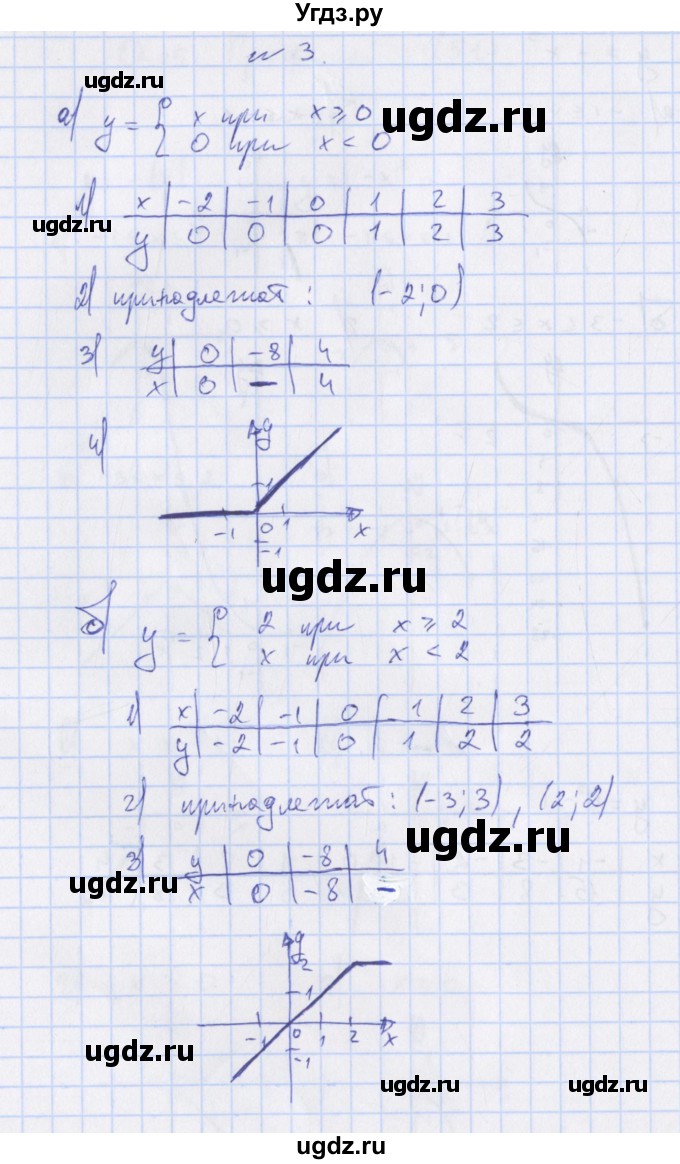 Угдз.ру
№ 3.
ugdz.ru
а) y = { x при x ≥ 0
0 при x < 0
ugdz.ru
1) x | -2 | -1 | 0 | 1 | 2 | 3
y | 0 | 0 | 0 | 1 | 2 | 3
ugdz.ru
2) принадлежат : (-2;0)
3) y | 0 | -8 | 4
x | 0 | – | 4
ugdz.ru
4) y
1
-1 0 1 x
-1
ugdz.ru
б) y = { 2 при x ≥ 2
x при x < 2
1) x | -2 | -1 | 0 | 1 | 2 | 3
y | -2 | -1 | 0 | 1 | 2 | 2
2) принадлежат : (-3;3), (2;2)
ugdz.ru
3) y | 0 | -8 | 4
x | 0 | -8 | –
ugdz.ru
y
2
1
-1 0 1 2 x
-1
ugdz.ru
ugdz.ru ugdz.ru
ugdz.ru